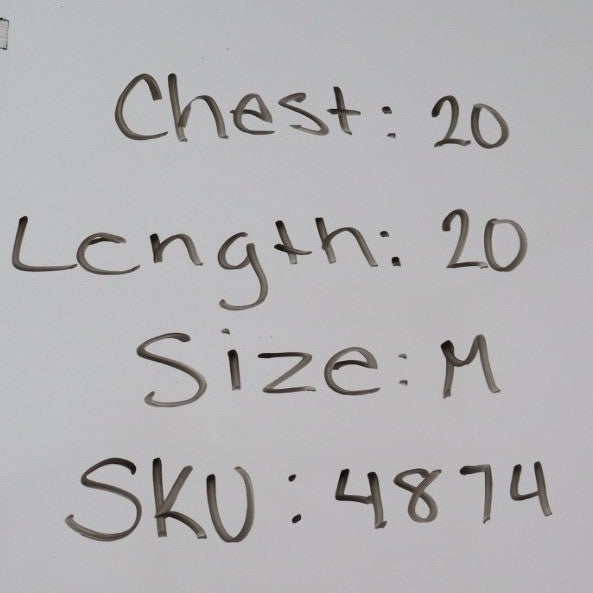 Chest: 20
Length: 20
Size: M
SKU: 4874